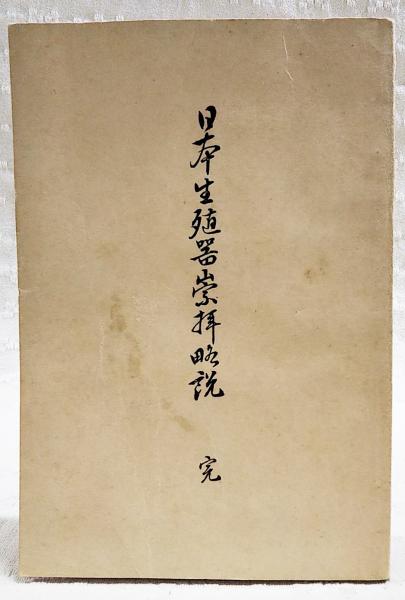 日本生殖器崇拝略説
完